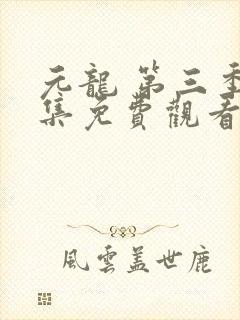 元龍 第三季
集免費觀看
風雲蓋世鹿